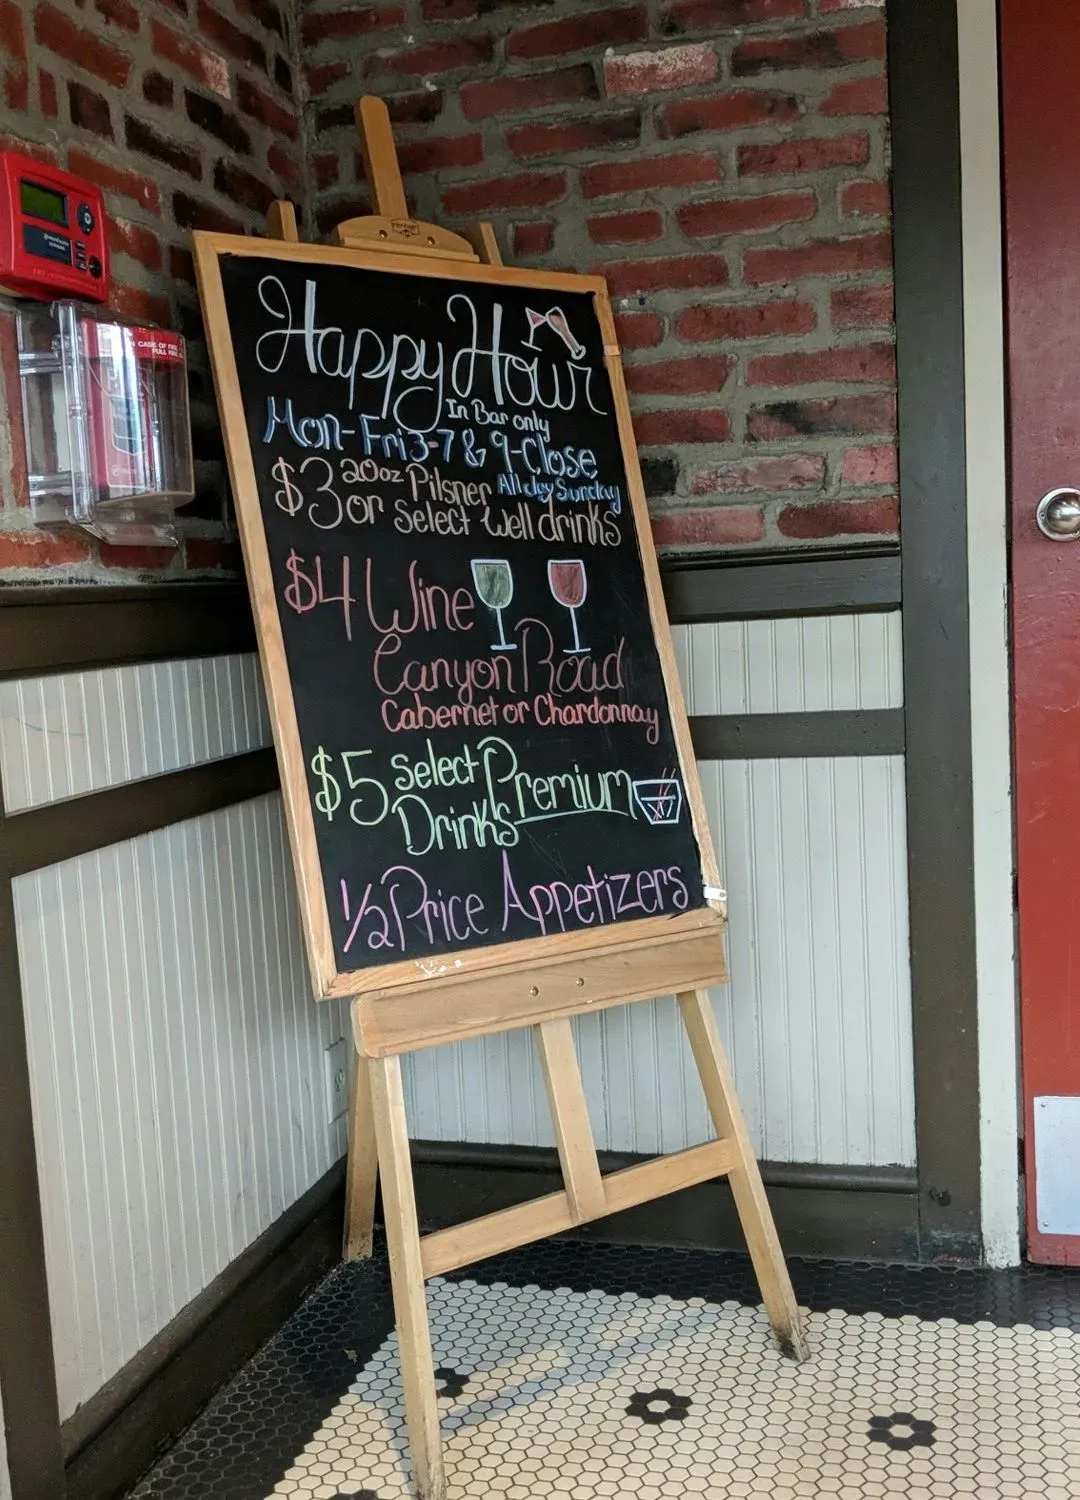 Happy Hour
In Bar only
Mon-Fri 3-7 & 9-Close
All day Sunday
$3 20oz Pilsner
or select well drinks
$4 Wine
Canyon Road
Cabernet or Chardonnay
$5 select Premium
Drinks
1/2 Price Appetizers